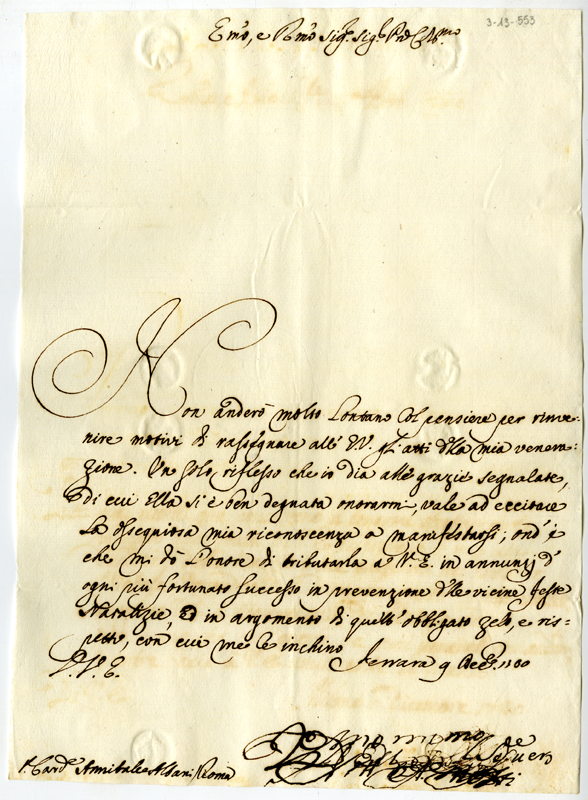 3-13-553
Emo, e Rmo Sigr. Sigr. Prone Colmo
Non anderò molto lontano col pensiere per rinve:
nire motivi di rassegnare all'E.V. gl'atti dlla mia venera:
zione. Un solo riflesso che io dia alle grazie segnalate,
di cui Ella si è ben degnata onorarmi, vale ad eccitare
la ossequiosa mia riconoscenza a manifestarsi; ond'è
che mi dò l'onore di tributarla a V. E. in annunzj d'
ogni più fortunato successo in prevenzione dlle vicine feste
Natalizie, et in argomento di quell'obbligato zelo, e ris:
petto, con cui me le inchino
Ferrara 9 Decre. 1700
D. V. E.
S. Card. Annibale Albani Roma